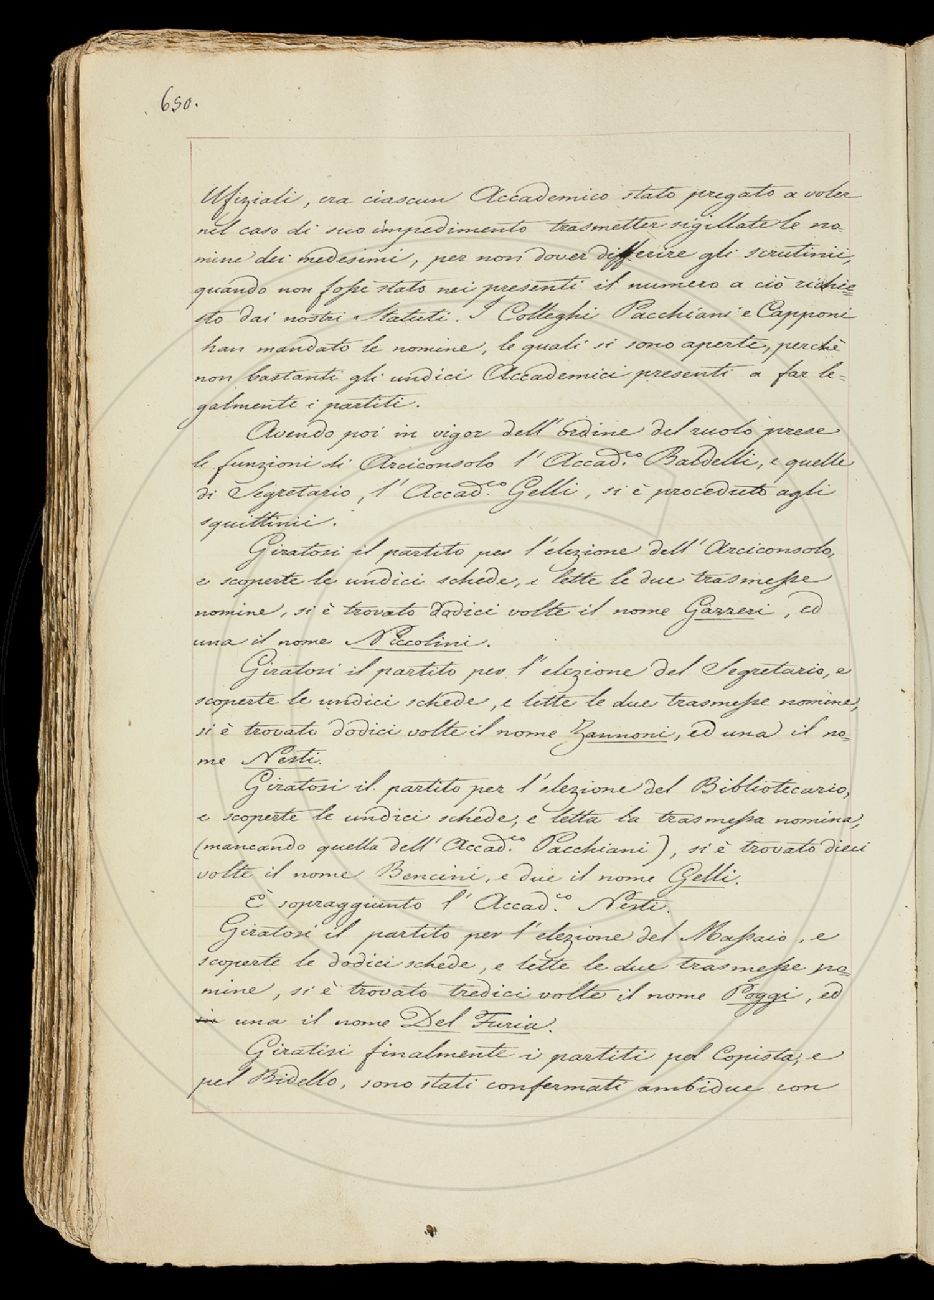 650.
Ufiziali, era ciascun Accademico stato pregato a voler
nel caso di suo impedimento trasmetter sigillate le no-
mine dei medesimi, per non dover differire gli scrutinii,
quando non fosse stato nei presenti il numero a ciò richie=
sto dai nostri Statuti. I Colleghi Pacchiani e Capponi
han mandato le nomine, le quali si sono aperte, perchè
non bastanti gli undici Accademici presenti a far le=
galmente i partiti.
Avendo poi in vigor dell'ordine del ruolo prese
le funzioni di Arciconsolo l'Accad.co Baldelli, e quelle
di Segretario, l'Accad.co Gelli, si è proceduto agli
squittinii.
Giratosi il partito per l'elezione dell'Arciconsolo,
e scoperte le undici schede, e lette le due trasmesse
nomine, si è trovato dodici volte il nome Gazzeri, ed
una il nome Niccolini.
Giratosi il partito per l'elezione del Segretario, e
scoperte le undici schede, e lette le due trasmesse nomine,
si è trovato dodici volte il nome Zannoni, ed una il no=
me Nesti.
Giratosi il partito per l'elezione del Bibliotecario,
e scoperte le undici schede, e letta la trasmessa nomina,
(mancando quella dell'Accad.co Pacchiani), si è trovato dieci
volte il nome Bencini, e due il nome Gelli.
È sopraggiunto l'Accad.co Nesti.
Giratosi il partito per l'elezione del Massaio, e
scoperte le dodici schede, e lette le due trasmesse no=
mine, si è trovato tredici volte il nome Poggi, ed
una il nome Del Furia.
Giratisi finalmente i partiti pel Copista, e
pel Bidello, sono stati confermati ambidue con